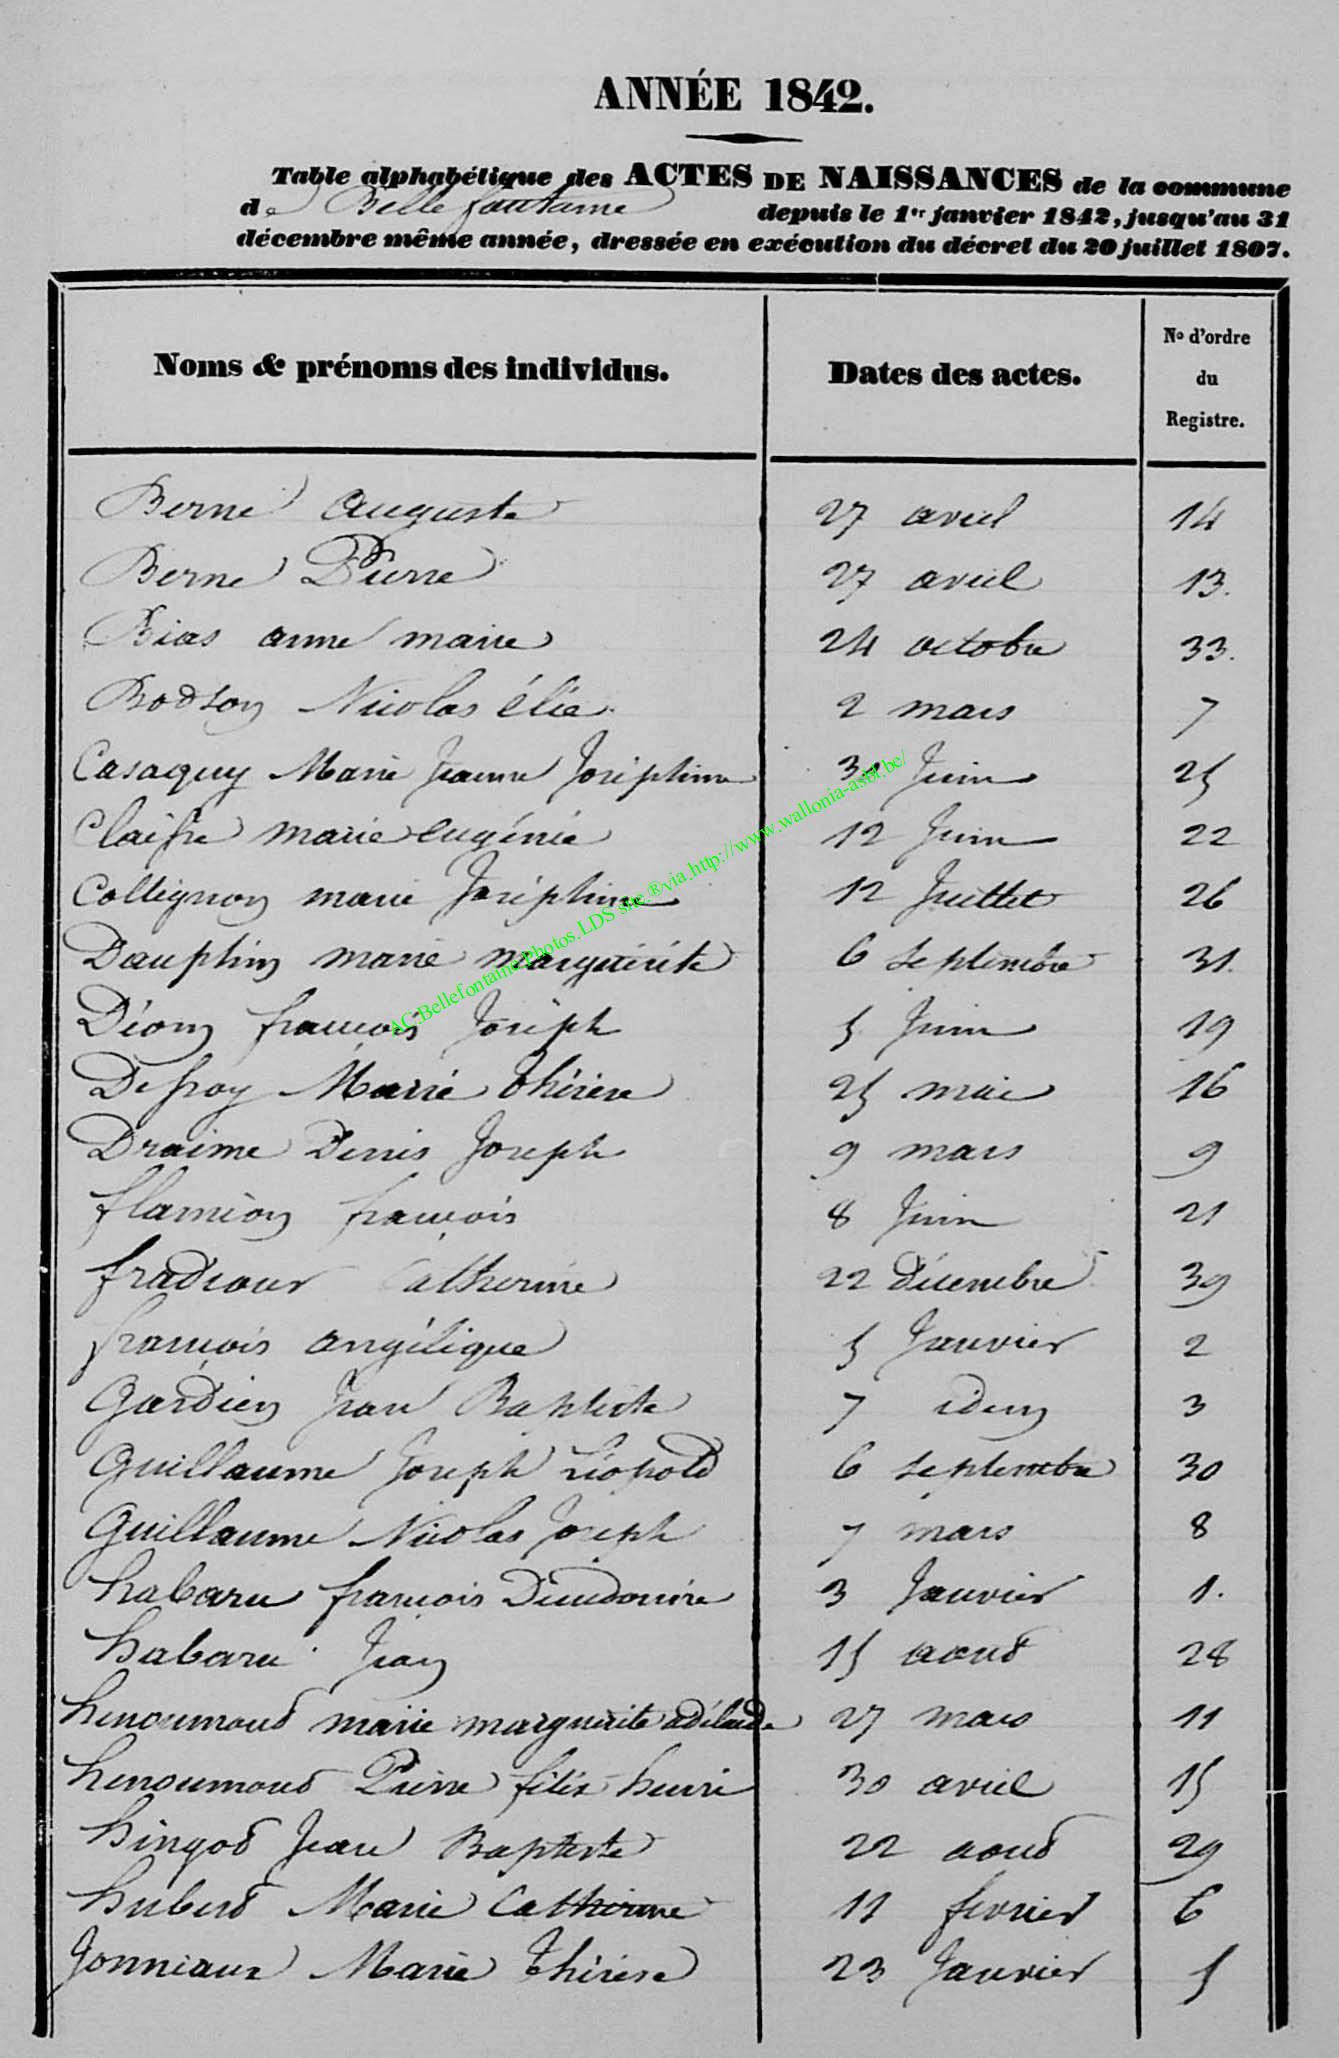 ANNÉE 1842.
Table alphabétique des ACTES DE NAISSANCES de la commune
de Bellefontaine depuis le 1er janvier 1842, jusqu'au 31
décembre même année, dressée en exécution du décret du 20 juillet 1807.
Noms & prénoms des individus. Dates des actes. No d'ordre du Registre.
Berne Auguste 27 avril 14
Berne Pierre 27 avril 13.
Bias anne marie 24 octobre 33.
Bodson Nicolas élie 2 mars 7
Casaquy Marie Jeanne Joséphine 30 Juin 25
Claisse marie eugénie 12 Juin 22
Collignon marie Joséphine 12 Juillet 26
Dauphin marie marguerite 6 septembre 31.
Déom françois Joseph 5 Juin 19
Defroy Marie thérèse 25 mai 16
Draime Denis Joseph 9 mars 9
flamion françois 8 Juin 21
fradcour Catherine 22 Décembre 39
françois angélique 5 Janvier 2
Gardien Jean Baptiste 7 idem 3
Guillaume Joseph Léopold 6 septembre 30
Guillaume Nicolas Joseph 7 mars 8
habaru françois Dieudonné 3 Janvier 1.
habaru Jean 15 aout 28
henoumont marie marguerite adélaide 27 mars 11
henoumont Pierre félix henri 30 avril 15
hingot Jean Baptiste 22 aout 29
hubert Marie Catherine 11 fevrier 6
Jonniaux Marie thérèse 23 Janvier 5
AC.Bellefontaine.Photos.LDS site.®via.http://www.wallonia-asbl.be/